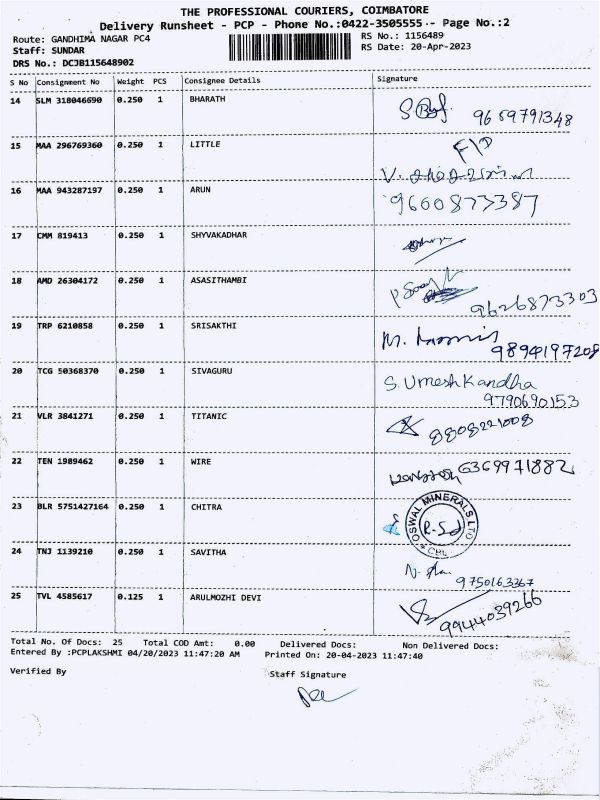 THE PROFESSIONAL COURIERS, COIMBATORE
Delivery Runsheet - PCP - Phone No.:0422-3505555 -- Page No.:2
Route: GANDHIMA NAGAR PC4
RS No.: 1156489
Staff: SUNDAR
RS Date: 20-Apr-2023
DRS No.: DCJB115648902
S No Consignment No Weight PCS Consignee Details Signature
14 SLM 318046690 0.250 1 BHARATH
9659791348
15 MAA 296769360 0.250 1 LITTLE
F/D
16 MAA 943287197 0.250 1 ARUN
V.
9600873387
17 CMM 819413 0.250 1 SHYVAKADHAR
18 AMD 26304172 0.250 1 ASASITHAMBI
9626873303
19 TRP 6210858 0.250 1 SRISAKTHI
M.
9894197208
20 TCG 50368370 0.250 1 SIVAGURU
S. Umesh Kandha
9790690153
21 VLR 3841271 0.250 1 TITANIC
8808221008
22 TEN 1989462 0.250 1 WIRE
6369971882
23 BLR 5751427164 0.250 1 CHITRA
OSWAL MINERALS LTD
* CBE *
24 TNJ 1139210 0.250 1 SAVITHA
9750163367
25 TVL 4585617 0.125 1 ARULMOZHI DEVI
9944039266
Total No. Of Docs: 25 Total COD Amt: 0.00 Delivered Docs: Non Delivered Docs:
Entered By :PCPLAKSHMI 04/20/2023 11:47:20 AM Printed On: 20-04-2023 11:47:40
Verified By Staff Signature